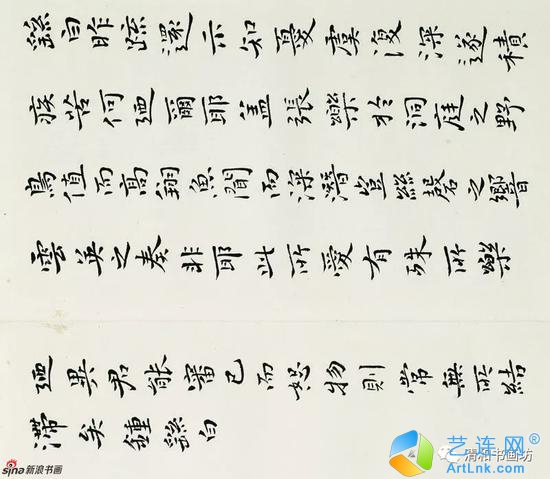 繇白昨疏還示知憂虞復深遂積
疾苦何迺爾耶蓋張樂於洞庭之野
鳥值而高翔魚聞而深潛豈絲磬之響
雲英之奏非耶此所愛有殊所樂
迺異君能審己而恕物則常無所結
滯矣鍾繇白
sina新浪书画
艺连网
ArtLnk.com
清和书画坊